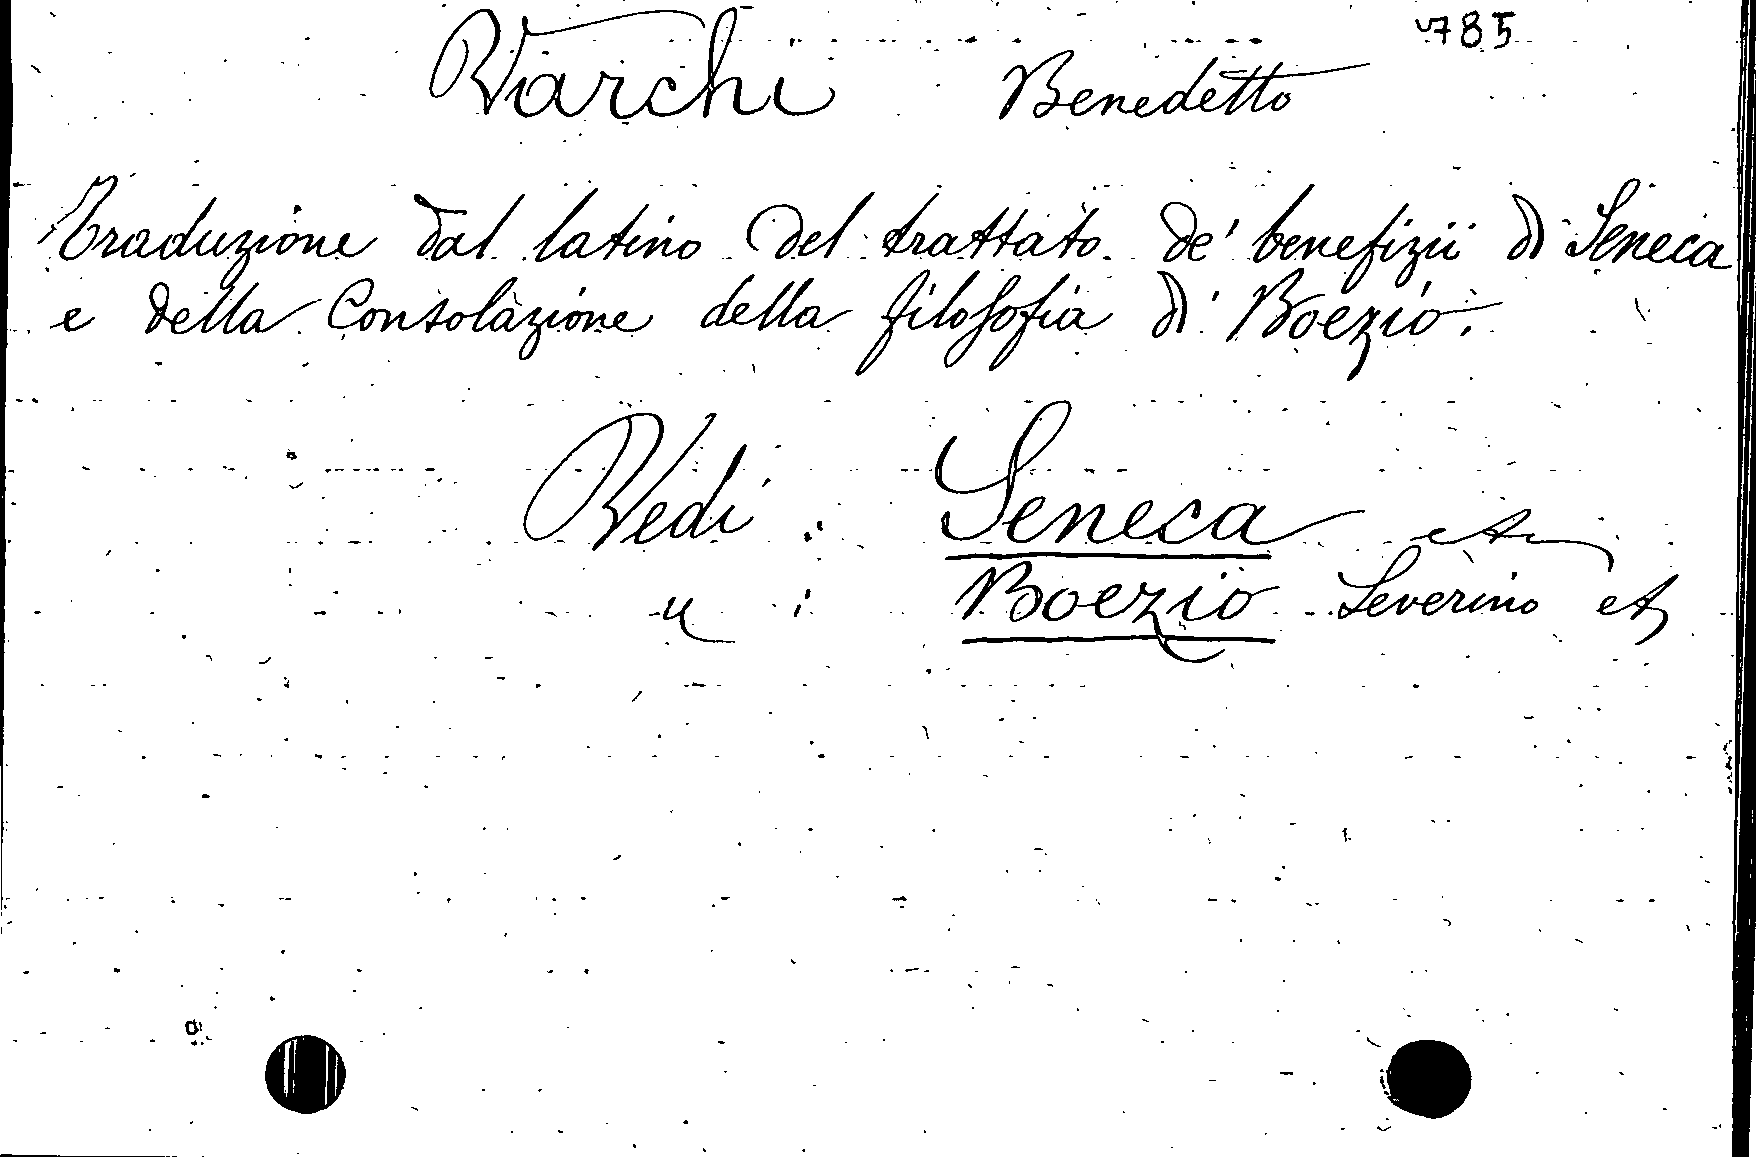 785
Varchi Benedetto
Traduzione dal latino del trattato de' benefizii di Seneca
e della Consolazione della filosofia di Boezio.
Vedi : Seneca etc
" : Boezio Severino etc